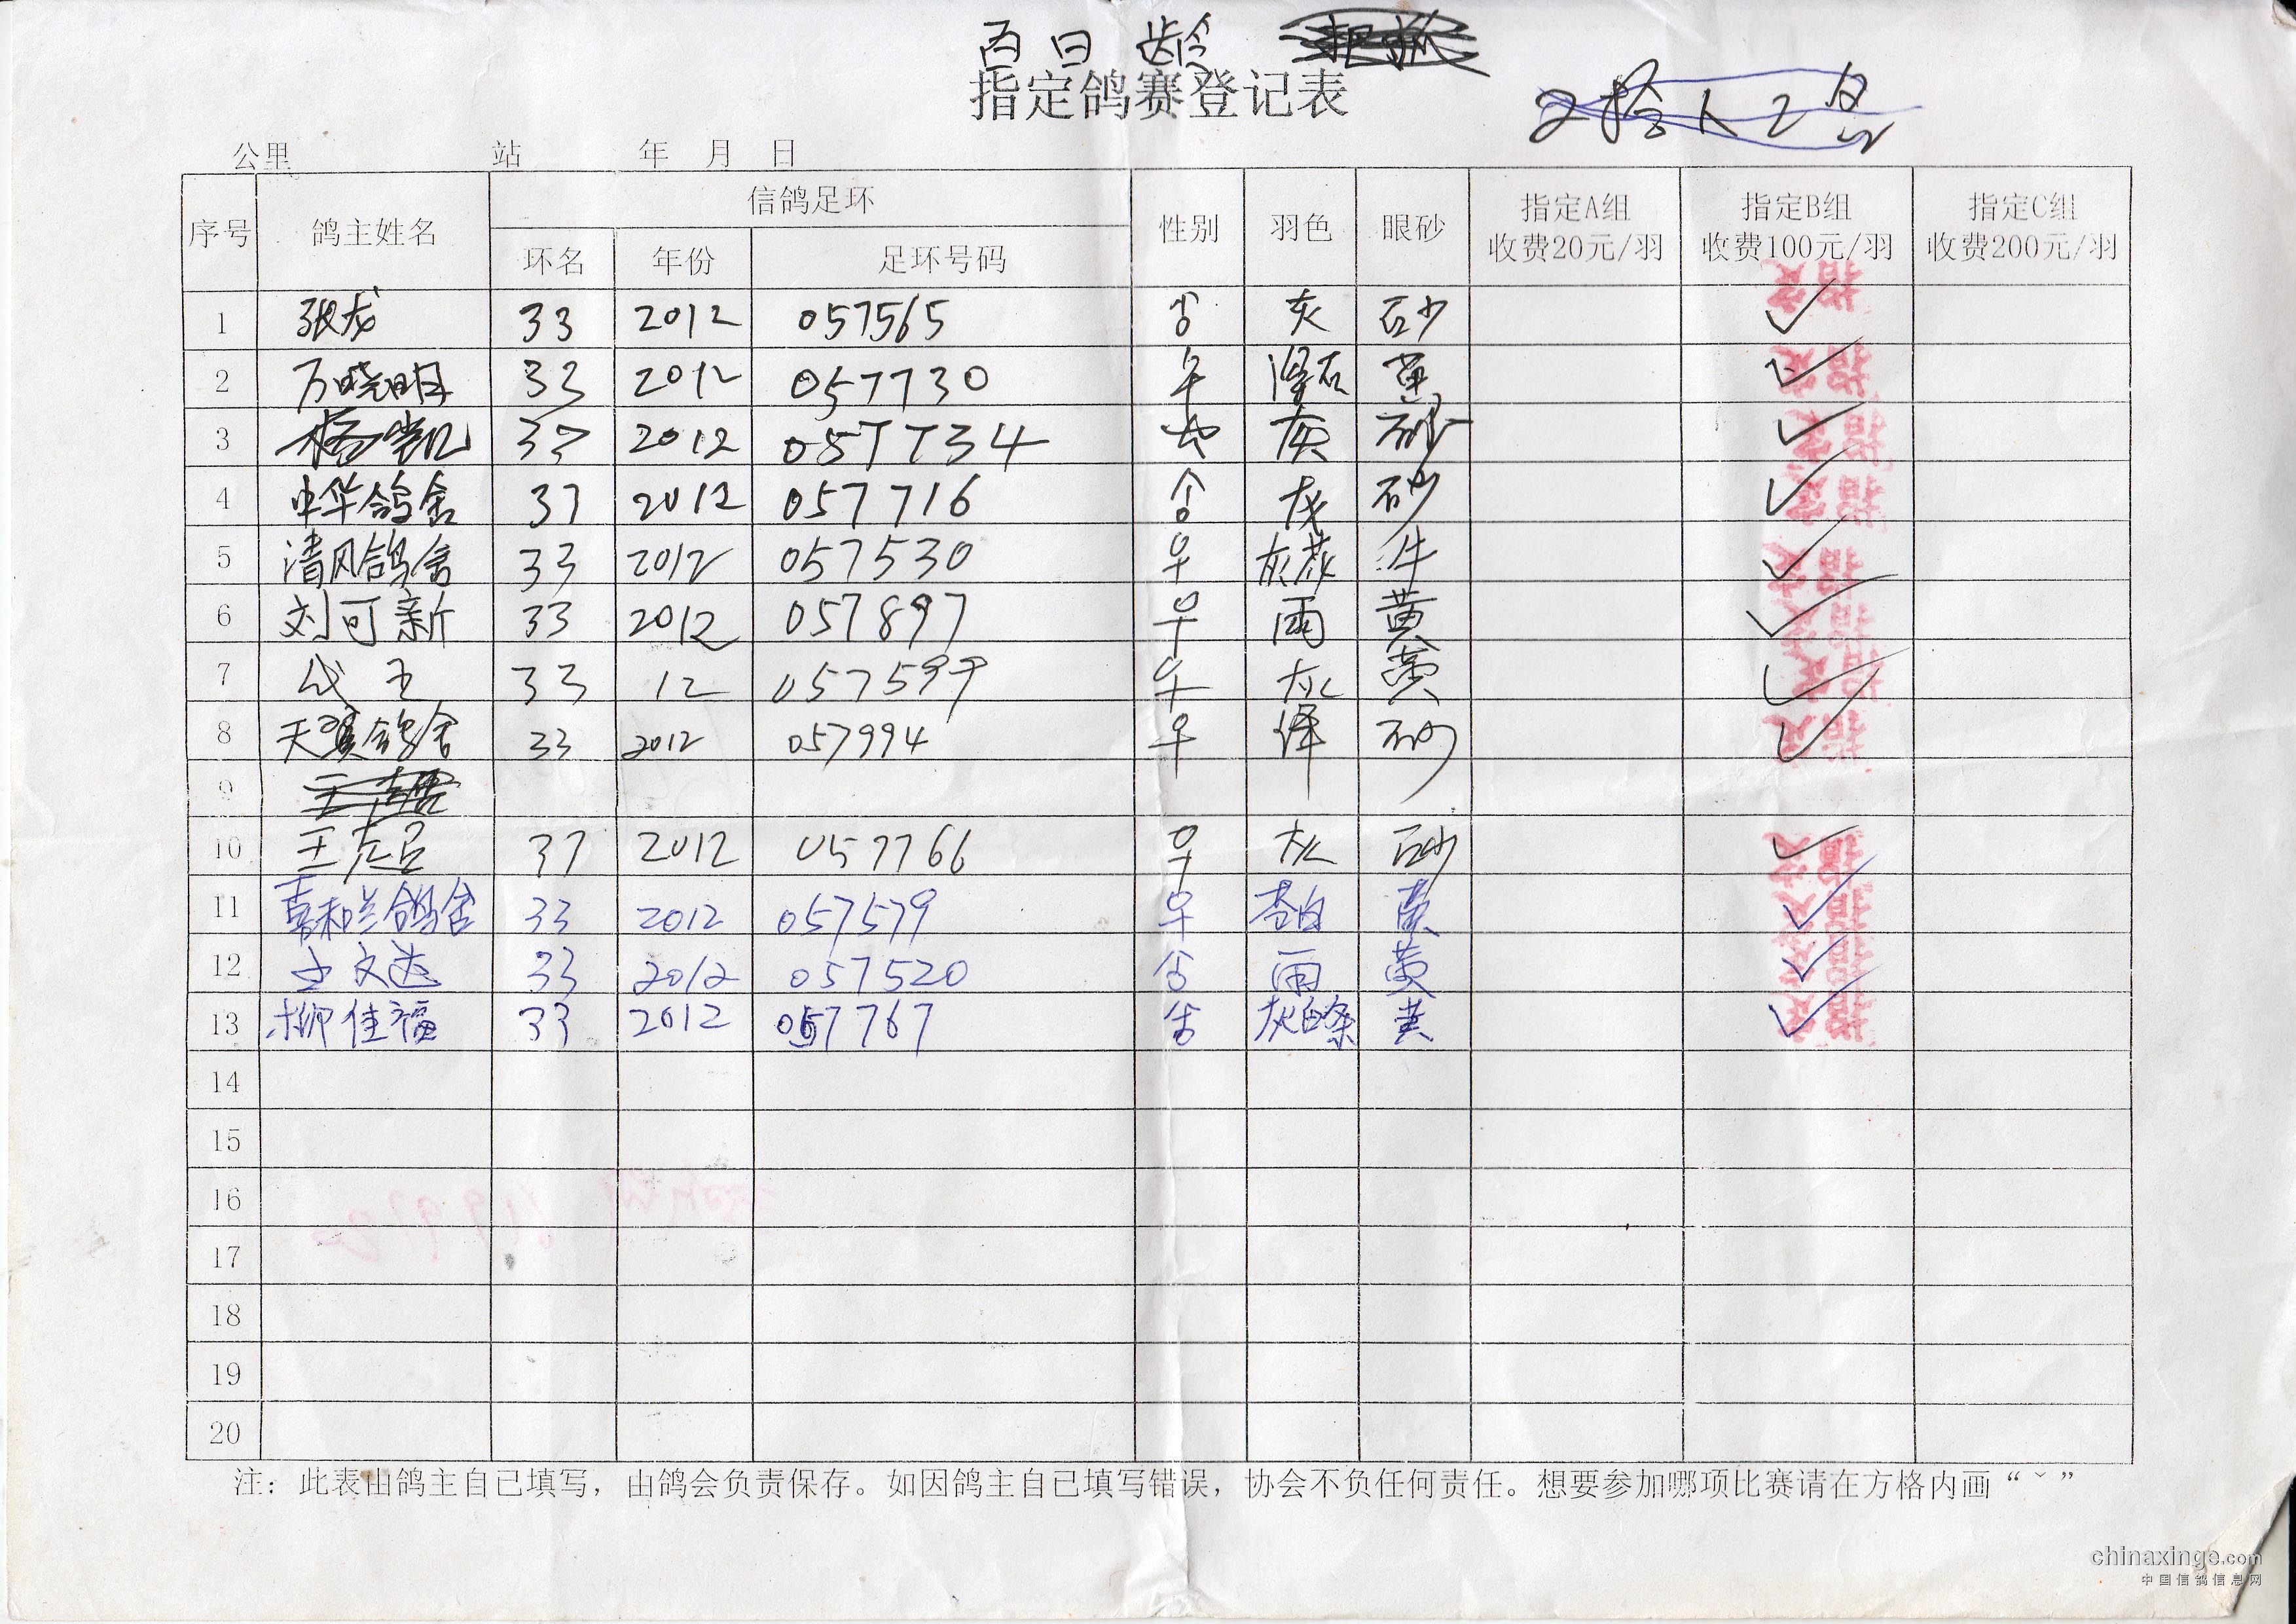 百日龄
指定鸽赛登记表
公里 站 年 月 日
序号 鸽主姓名 信鸽足环 性别 羽色 眼砂 指定A组 收费20元/羽 指定B组 收费100元/羽 指定C组 收费200元/羽
环名 年份 足环号码
1 张龙 33 2012 057565 灰 砂 ✓
2 万晓明 33 2012 057730 黄 ✓
3 杨凯 33 2012 057734 灰 砂 ✓
4 中华鸽舍 37 2012 057716 灰 砂 ✓
5 清风鸽舍 33 2012 057530 ♀ 牛 ✓
6 刘可新 33 2012 057897 ♀ 雨 黄 ✓
7 33 12 057599 ♀ 灰 黄 ✓
8 天翼鸽舍 33 2012 057994 ♀ 绛 砂 ✓
9
10 37 2012 057766 ♀ 灰 砂 ✓
11 喜和兰鸽舍 33 2012 057579 ♀ 苍白 黄 ✓
12 王文达 33 2012 057520 雨 黄 ✓
13 柳佳福 33 2012 057767 灰白条 黄 ✓
14
15
16
17
18
19
20
注：此表由鸽主自己填写，由鸽会负责保存。如因鸽主自己填写错误，协会不负任何责任。想要参加哪项比赛请在方格内画“ˇ”
chinaxinge.com
中国信鸽信息网